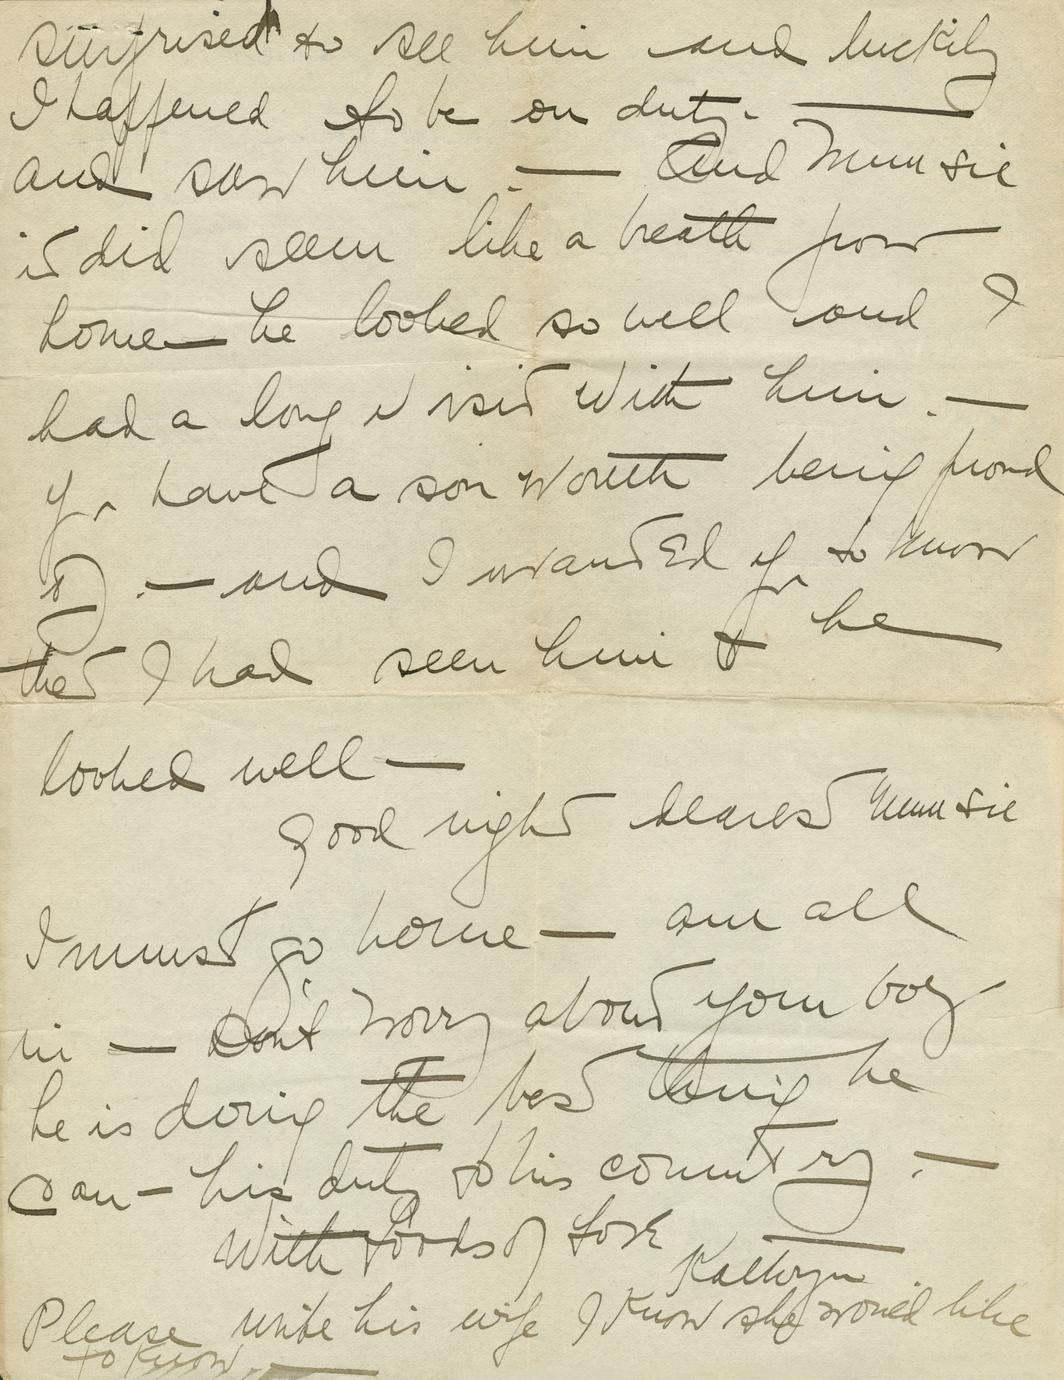 surprised to see him and luckily
I happened to be on duty. —
and saw him. — And Mumsie
it did seem like a breath from
home — he looked so well and I
had a long visit with him. —
Yr have a son worth being proud
of. — and I wanted yr to know
that I had seen him & he —
looked well —
Good night dearest Mumsie
I must go home — am all
in — Don't worry about your boy
he is doing the best thing he
can — his duty to his country. —
With loads of love
Kathryn
Please write his wife I know she would like
to know. —